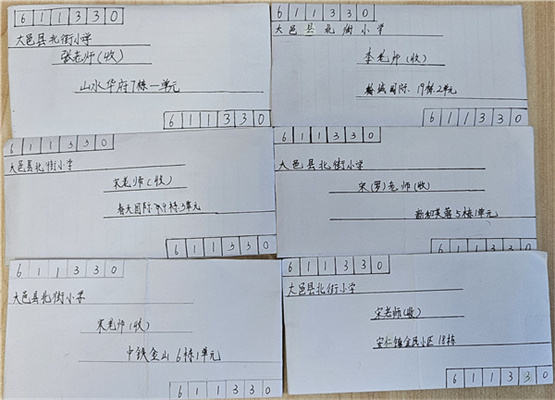 611330
大邑县北街小学
张老师(收)
山水华府7栋一单元
611330
611330
大邑县北街小学
李老师(收)
国际 19栋2单元
611330
611330
大邑县北街小学
宋老师(收)
春天国际 栋3单元
611330
611330
大邑县北街小学
宋(罗)老师(收)
5栋1单元
611330
611330
大邑县北街小学
宋老师(收)
中铁金山 6栋1单元
611330
611330
大邑县北街小学
宋老师(收)
安仁镇金民小区18栋
611330